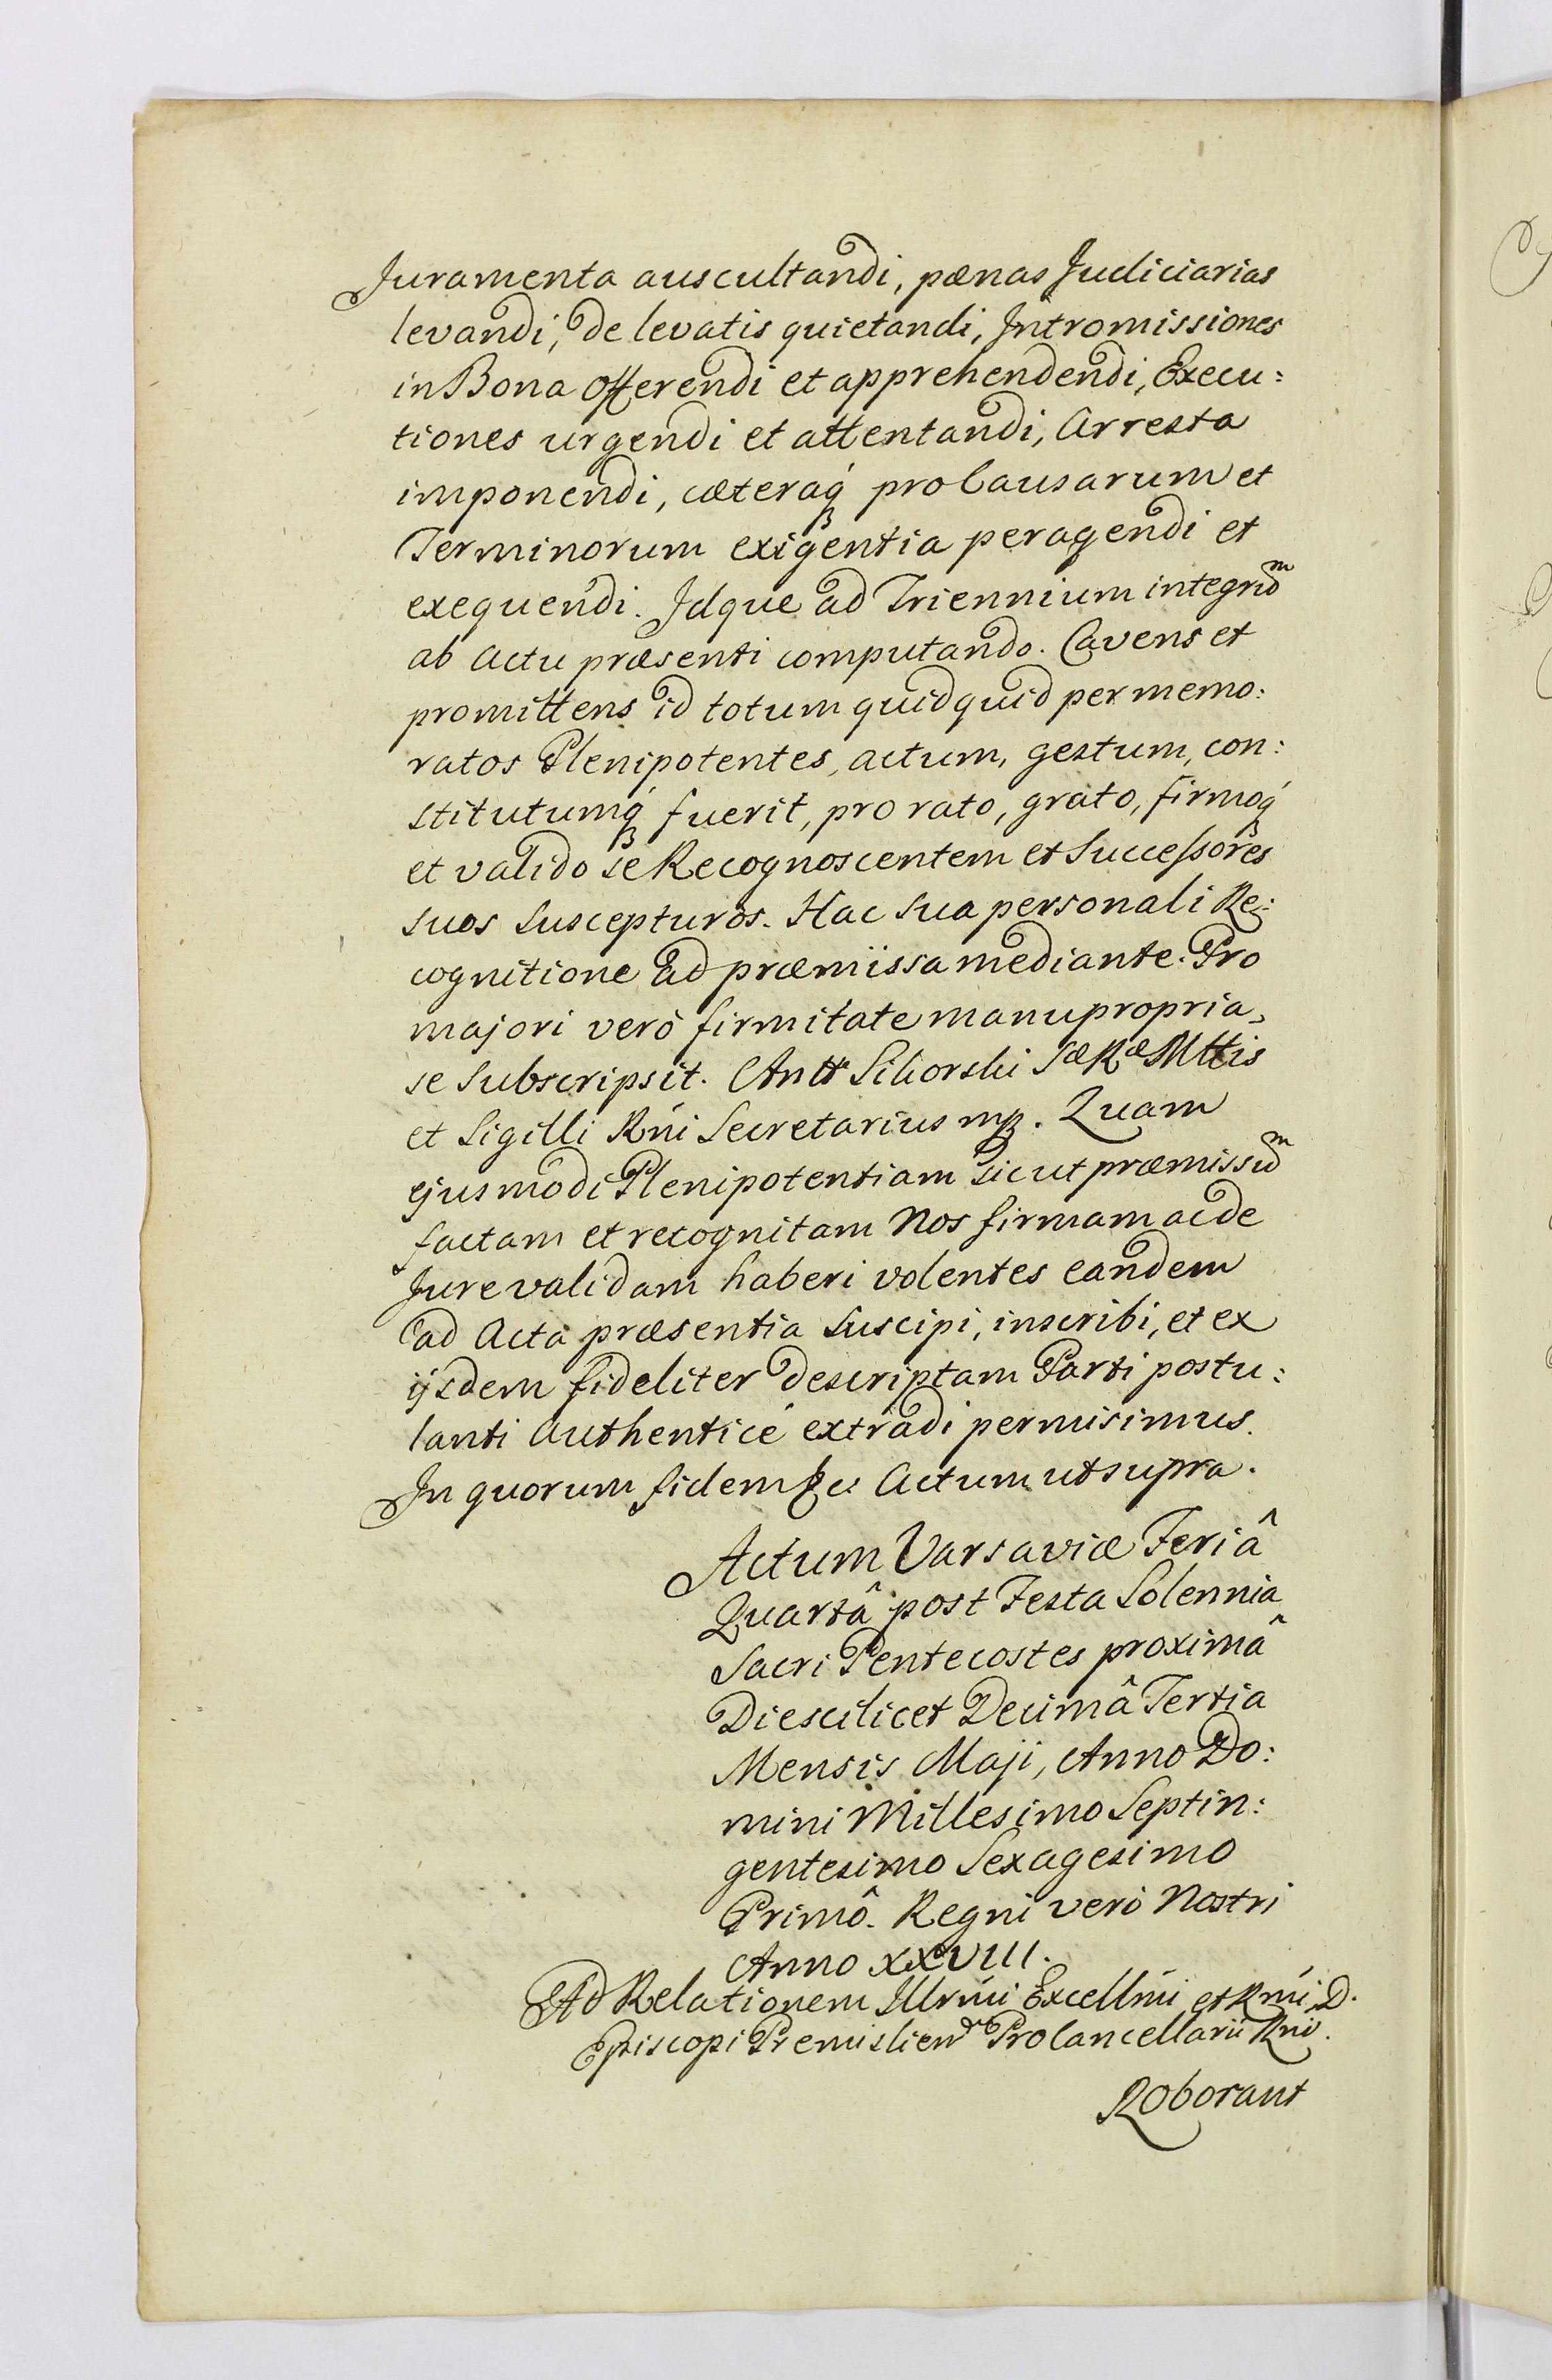 Juramenta auscultandi, pænas Judiciarias
levandi, de levatis quietandi, Intromissiones
in Bona offerendi et apprehendendi, Execu:
tiones urgendi et attentandi, Arresta
imponendi, cæteraq́ pro Causarum et
Terminorum exigentia peragendi et
exequendi. Idque ad Triennium integrũ
ab Actu præsenti computando. Cavens et
promittens id totum quidquid per memo:
ratos Plenipotentes, actum, gestum, con:
stitutumq́ fuerit, pro rato, grato, firmoq́
et valido se Recognoscentem et Successores
suos suscepturos. Hac sua personali Re:
cognitione ad præmissa mediante. Pro
majori verò firmitate manu propria,
se subscripsit. Antt Sikorski Sæ Ræ Mttis
et Sigilli Rńi Secretarius mp. Quam
ejusmodi Plenipotentiam sicut præmissũ
factam et recognitam Nos firmam ac de
Jure validam haberi volentes eandem
ad Acta præsentia suscipi, inscribi, et ex
ijsdem fideliter descriptam Parti postu:
lanti authenticé extradi permisimus.
In quorum fidem &c Actum ut supra.
Actum Varsaviæ Feriâ
Quartâ post Festa Solennia
Sacri Pentecostes proximâ
Die scilicet Decimâ Tertia
Mensis Maji, Anno Do:
mini Millesimo Septin:
gentesimo Sexagesimo
Primô. Regni verò Nostri
Anno XXVIII.
Ad Relationem Illrḿi Excellḿi et Rḿi D.
Episcopi Premislien Procancellarii Rni.
Roborant